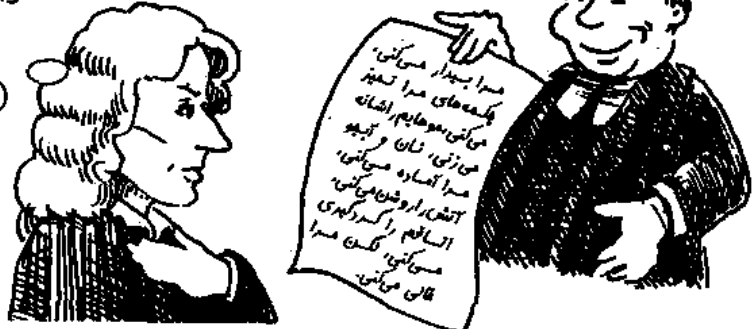 مرا بیدار می‌کنی،
چکمه‌های مرا تمیز
می‌کنی، موهایم راشانه
می‌زنی، نان و آبجو
مرا آماده می‌کنی،
آتش را روشن می‌کنی،
اتاقم را گردگیری
می‌کنی، لگن مرا
خالی می‌کنی.